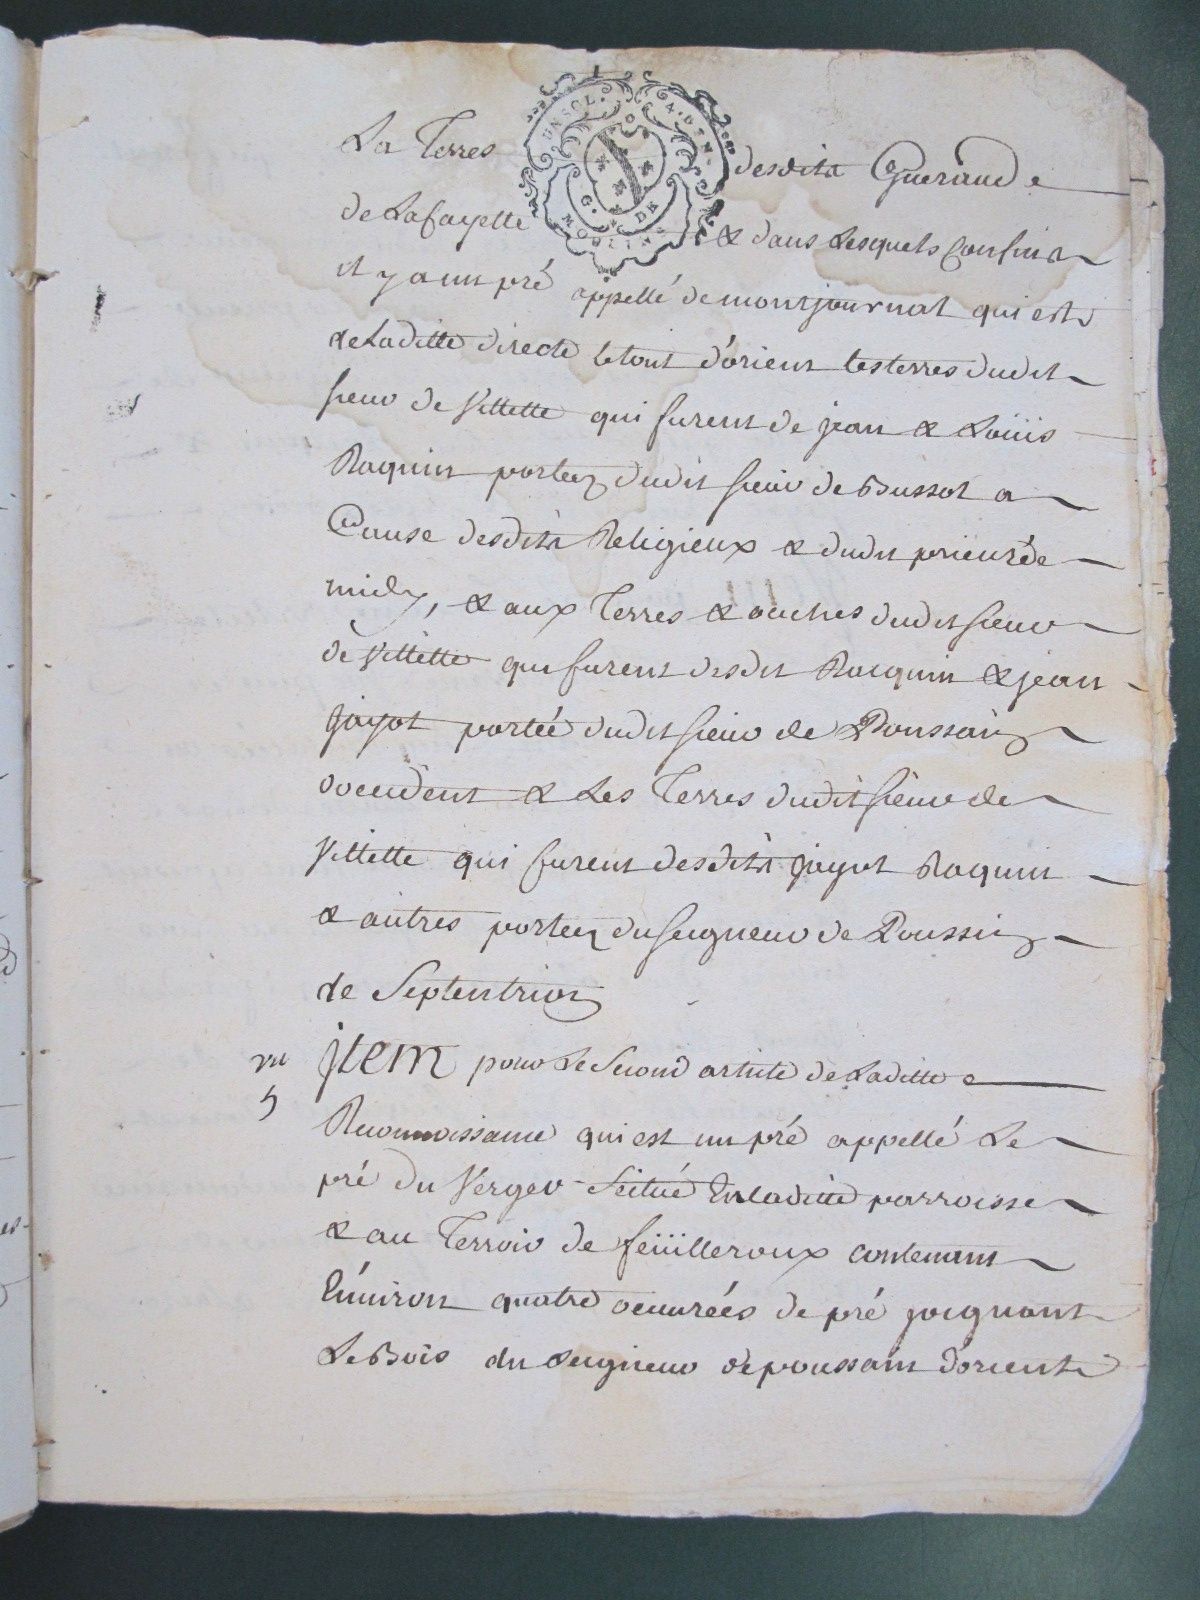 La Terres desdits Gueraud
UN SOL. 4. DEN.
G. DE MOULINS
de Lafayette & dans Lesquels Confins
il y a un pré appellé de montjournal qui est
de Laditte directe le tout d'orient les terres dudit
sieur de Villette qui furent de jean & Loüis
Raquin portez dudit sieur de Bussot a
Cause desdits Religieux & dudit prieuré de
midy, & aux Terres & ouches dudit sieur
de Villette qui furent desdit Raquin & jean
jayot portée dudit sieur de Poussain
occident & Les Terres dudit sieur de
Villette qui furent desdits jayot Raquin
& autres portez du seigneur de Poussin
de Septentrion
jtem pour Le Second article de Laditte
5
Reconnoissance qui est un pré appellé Le
pré du Verger Scitué En laditte parroisse
& au Terroir de feüilleroux contenant
Environ quatre oeuvrées de pré joignant
Le Bois du Seigneur de poussain d'orient